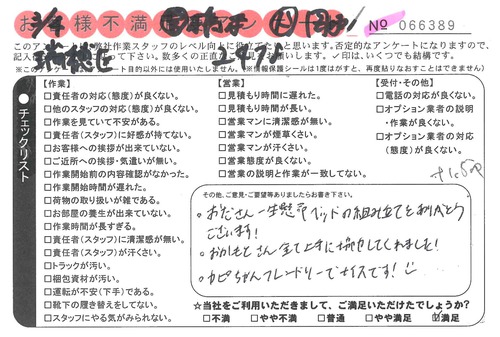 3/4
お客様不満
№ 066389
このアンケートは、弊社作業スタッフのレベル向上に役立てたいと思います。否定的なアンケートになりますので、
記入 下さい。多数のご正直 お願いします。✓印は、いくつでも結構です。
※このアンケート目的以外には使用いたしません。※情報保護シールは1度はがすと、再度貼りなおすことはできません。
チェックリスト
【作業】
□責任者の対応(態度)が良くない。
□他のスタッフの対応(態度)が良くない。
□作業を見ていて不安がある。
□責任者(スタッフ)に好感が持てない。
□お客様への挨拶が出来ていない。
□ご近所への挨拶・気遣いが無い。
□作業開始前の内容確認がなかった。
□作業開始時間が遅れた。
□荷物の取り扱いが雑である。
□お部屋の養生が出来ていない。
□作業時間が長すぎる。
□責任者(スタッフ)に清潔感が無い。
□責任者(スタッフ)が汗くさい。
□トラックが汚い。
□梱包資材が汚い。
□運転が不安(下手)である。
□靴下の履き替えをしてない。
□スタッフにやる気がみられない。
【営業】
□見積もり時間に遅れた。
□見積もり時間が長い。
□営業マンに清潔感が無い。
□営業マンが煙草くさい。
□営業マンが汗くさい。
□営業態度が良くない。
□営業の説明と作業が一致してない。
【受付・その他】
□電話の対応が良くない。
□オプション業者の説明
・作業が良くない。
□オプション業者の対応
(態度)が良くない。
その他、ご意見・ご要望等ありましたらお書き下さい。
○おださん一生懸命ベッドの組み立てをありがとう
ございます!
○おかもとさん全て上手に してくれました!
○カピちゃんフレンドリーでナイスです!
☆当社をご利用いただきまして、ご満足いただけたでしょうか?
□不満 □やや不満 □普通 □やや満足 ☑満足